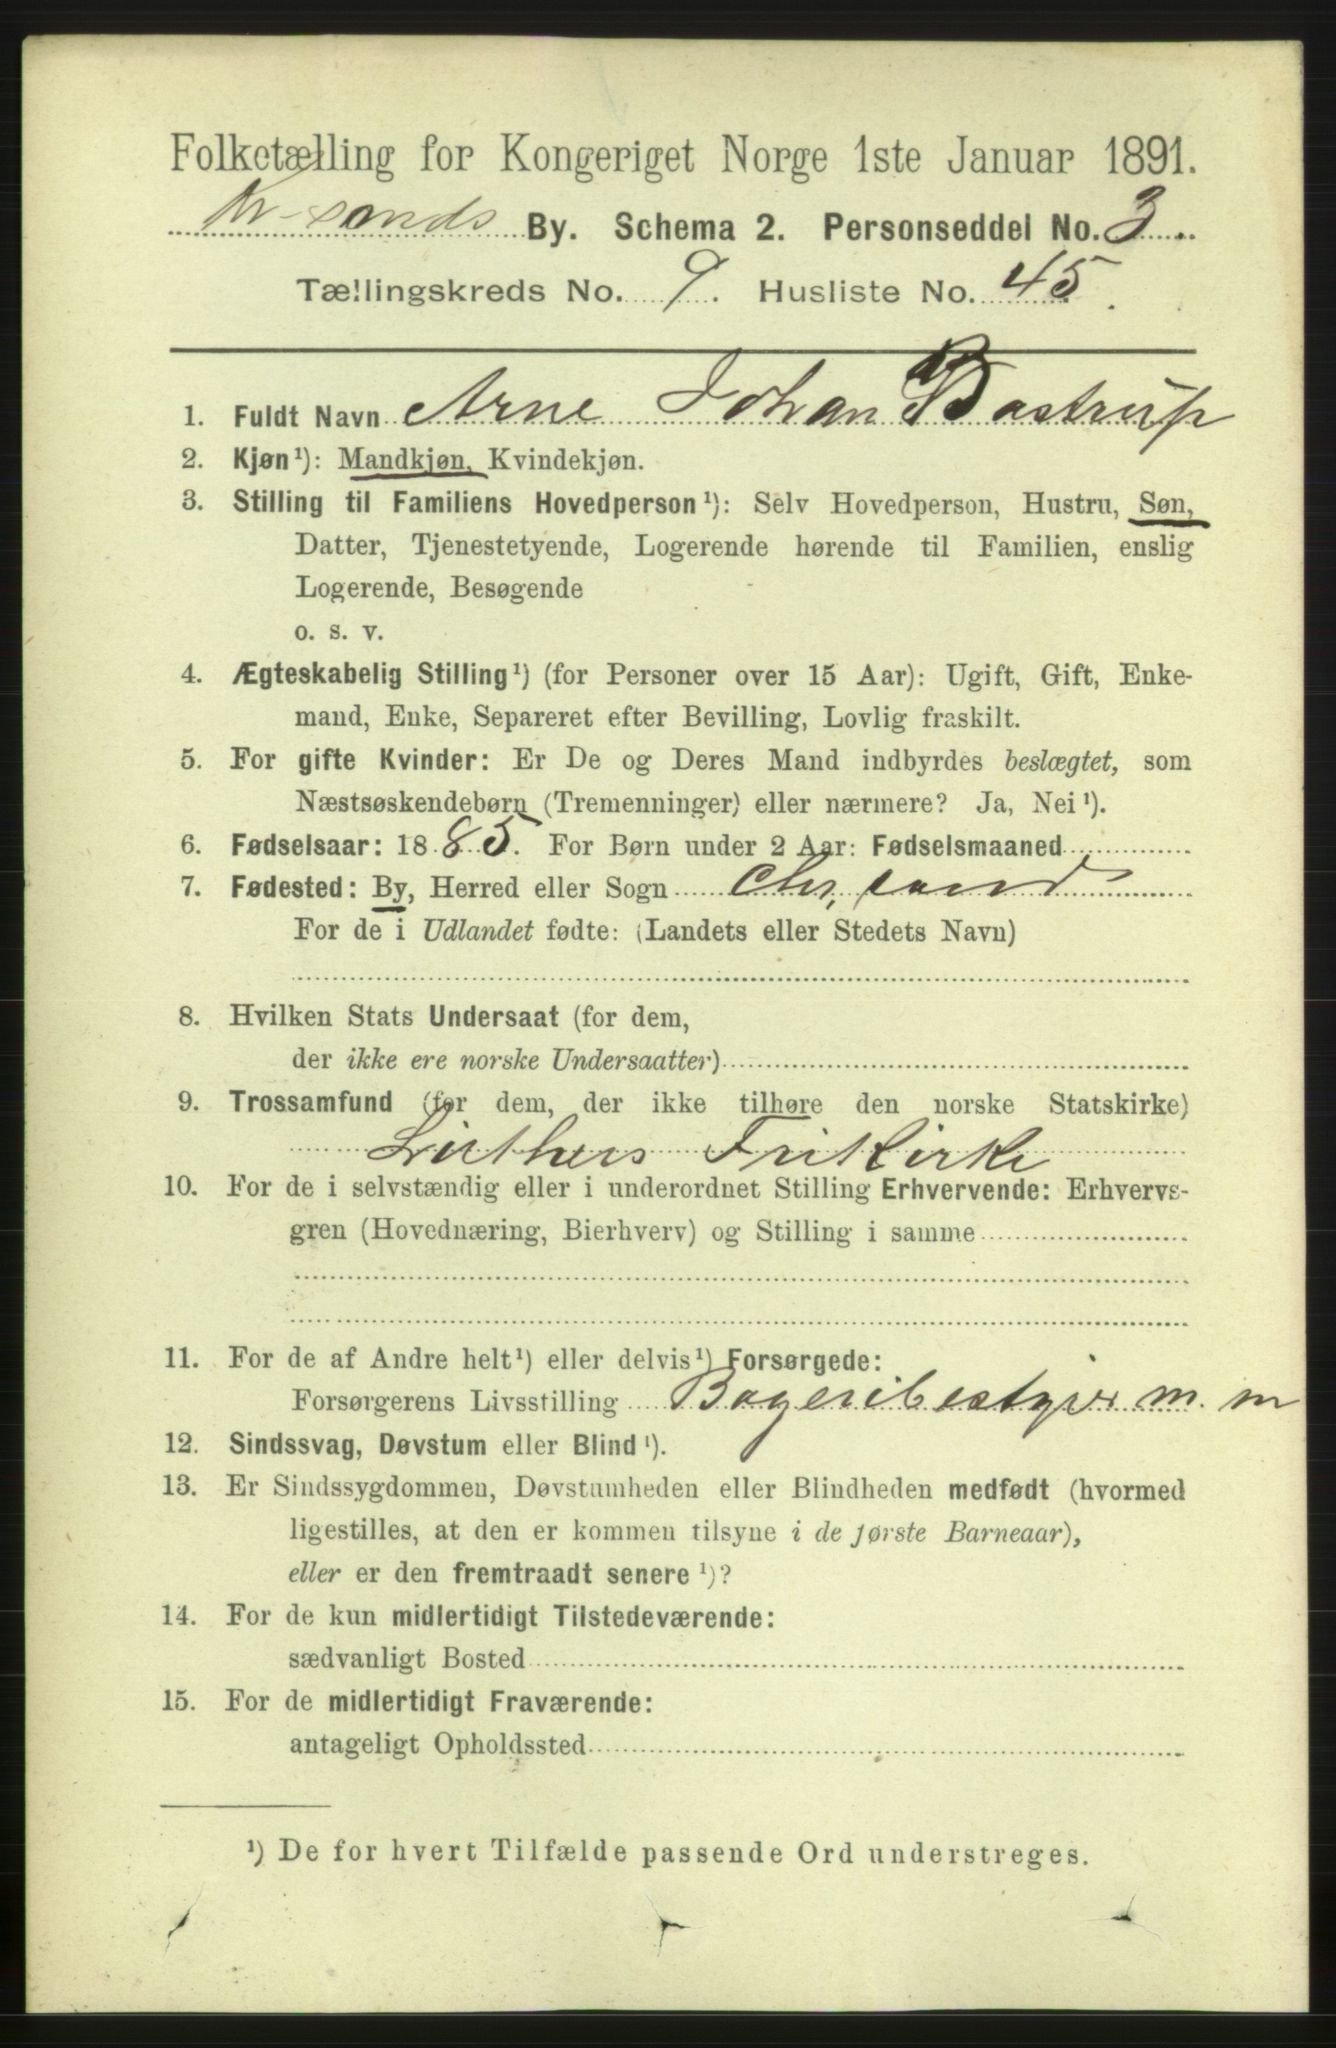 Folketælling for Kongeriget Norge 1ste Januar 1891.
Kr-sands By. Schema 2. Personseddel No. 3
Tællingskreds No. 9. Husliste No. 45.
1. Fuldt Navn Arne Johan Bastrup
2. Kjøn¹): Mandkjøn, Kvindekjøn.
3. Stilling til Familiens Hovedperson¹): Selv Hovedperson, Hustru, Søn,
Datter, Tjenestetyende, Logerende hørende til Familien, enslig
Logerende, Besøgende
o. s. v.
4. Ægteskabelig Stilling¹) (for Personer over 15 Aar): Ugift, Gift, Enke-
mand, Enke, Separeret efter Bevilling, Lovlig fraskilt.
5. For gifte Kvinder: Er De og Deres Mand indbyrdes beslægtet, som
Næstsøskendebørn (Tremenninger) eller nærmere? Ja, Nei¹).
6. Fødselsaar: 1885. For Børn under 2 Aar: Fødselsmaaned
7. Fødested: By, Herred eller Sogn Chr. sand
For de i Udlandet fødte: (Landets eller Stedets Navn)
8. Hvilken Stats Undersaat (for dem,
der ikke ere norske Undersaatter)
9. Trossamfund (for dem, der ikke tilhøre den norske Statskirke)
Luthers Frikirke
10. For de i selvstændig eller i underordnet Stilling Erhvervende: Erhvervs-
gren (Hovednæring, Bierhverv) og Stilling i samme
11. For de af Andre helt¹) eller delvis¹) Forsørgede:
Forsørgerens Livsstilling Bageribestyrer m. m
12. Sindssvag, Døvstum eller Blind¹).
13. Er Sindssygdommen, Døvstumheden eller Blindheden medfødt (hvormed
ligestilles, at den er kommen tilsyne i de første Barneaar),
eller er den fremtraadt senere¹)?
14. For de kun midlertidigt Tilstedeværende:
sædvanligt Bosted
15. For de midlertidigt Fraværende:
antageligt Opholdssted
¹) De for hvert Tilfælde passende Ord understreges.